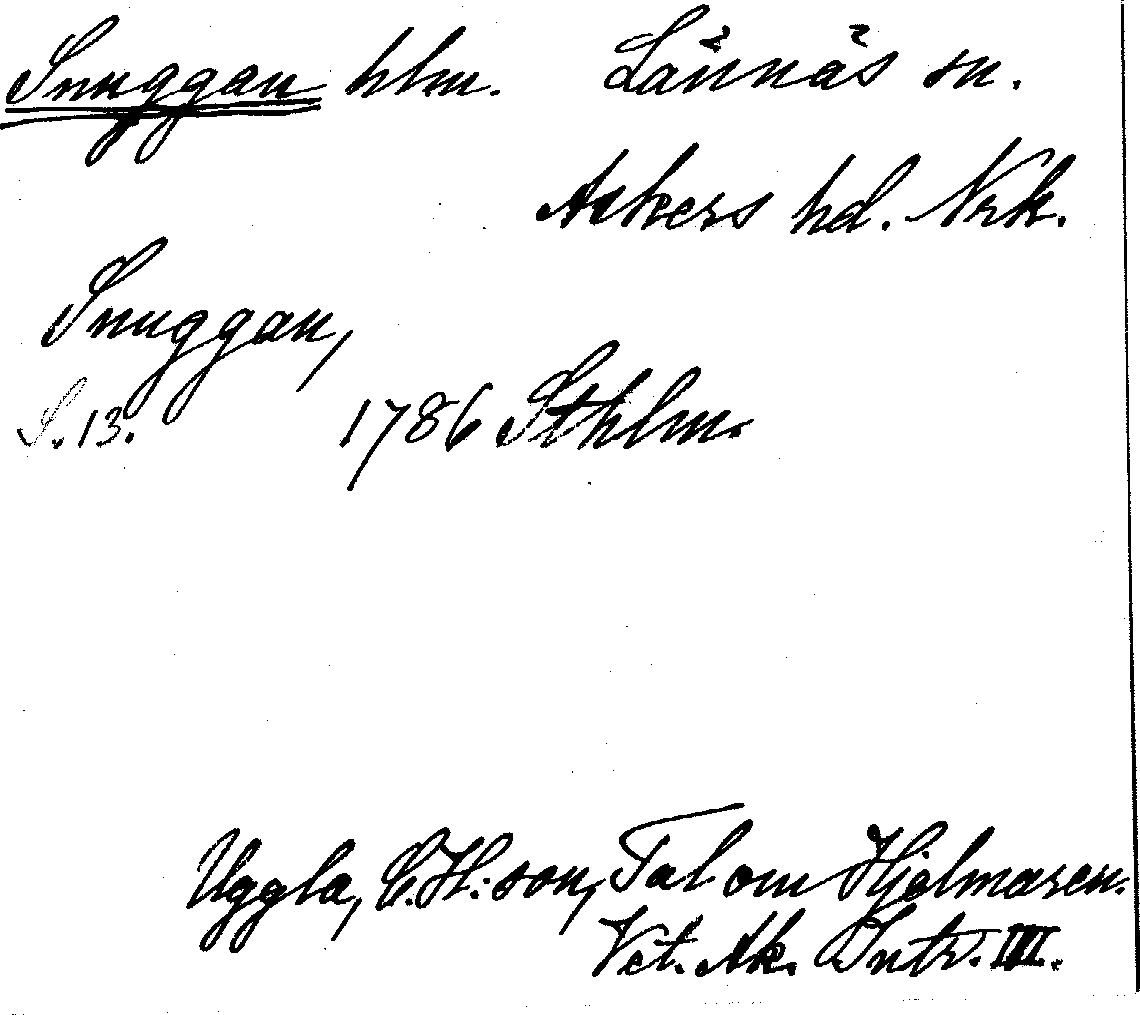 Snuggan hlm. Lännäs sn.
Askers hd. Nrk.
Snuggan,
S. 13. 1786 Sthlm.
Uggla, C. H:son, Tal om Hjelmaren.
Vet. Ak. Intr. III.